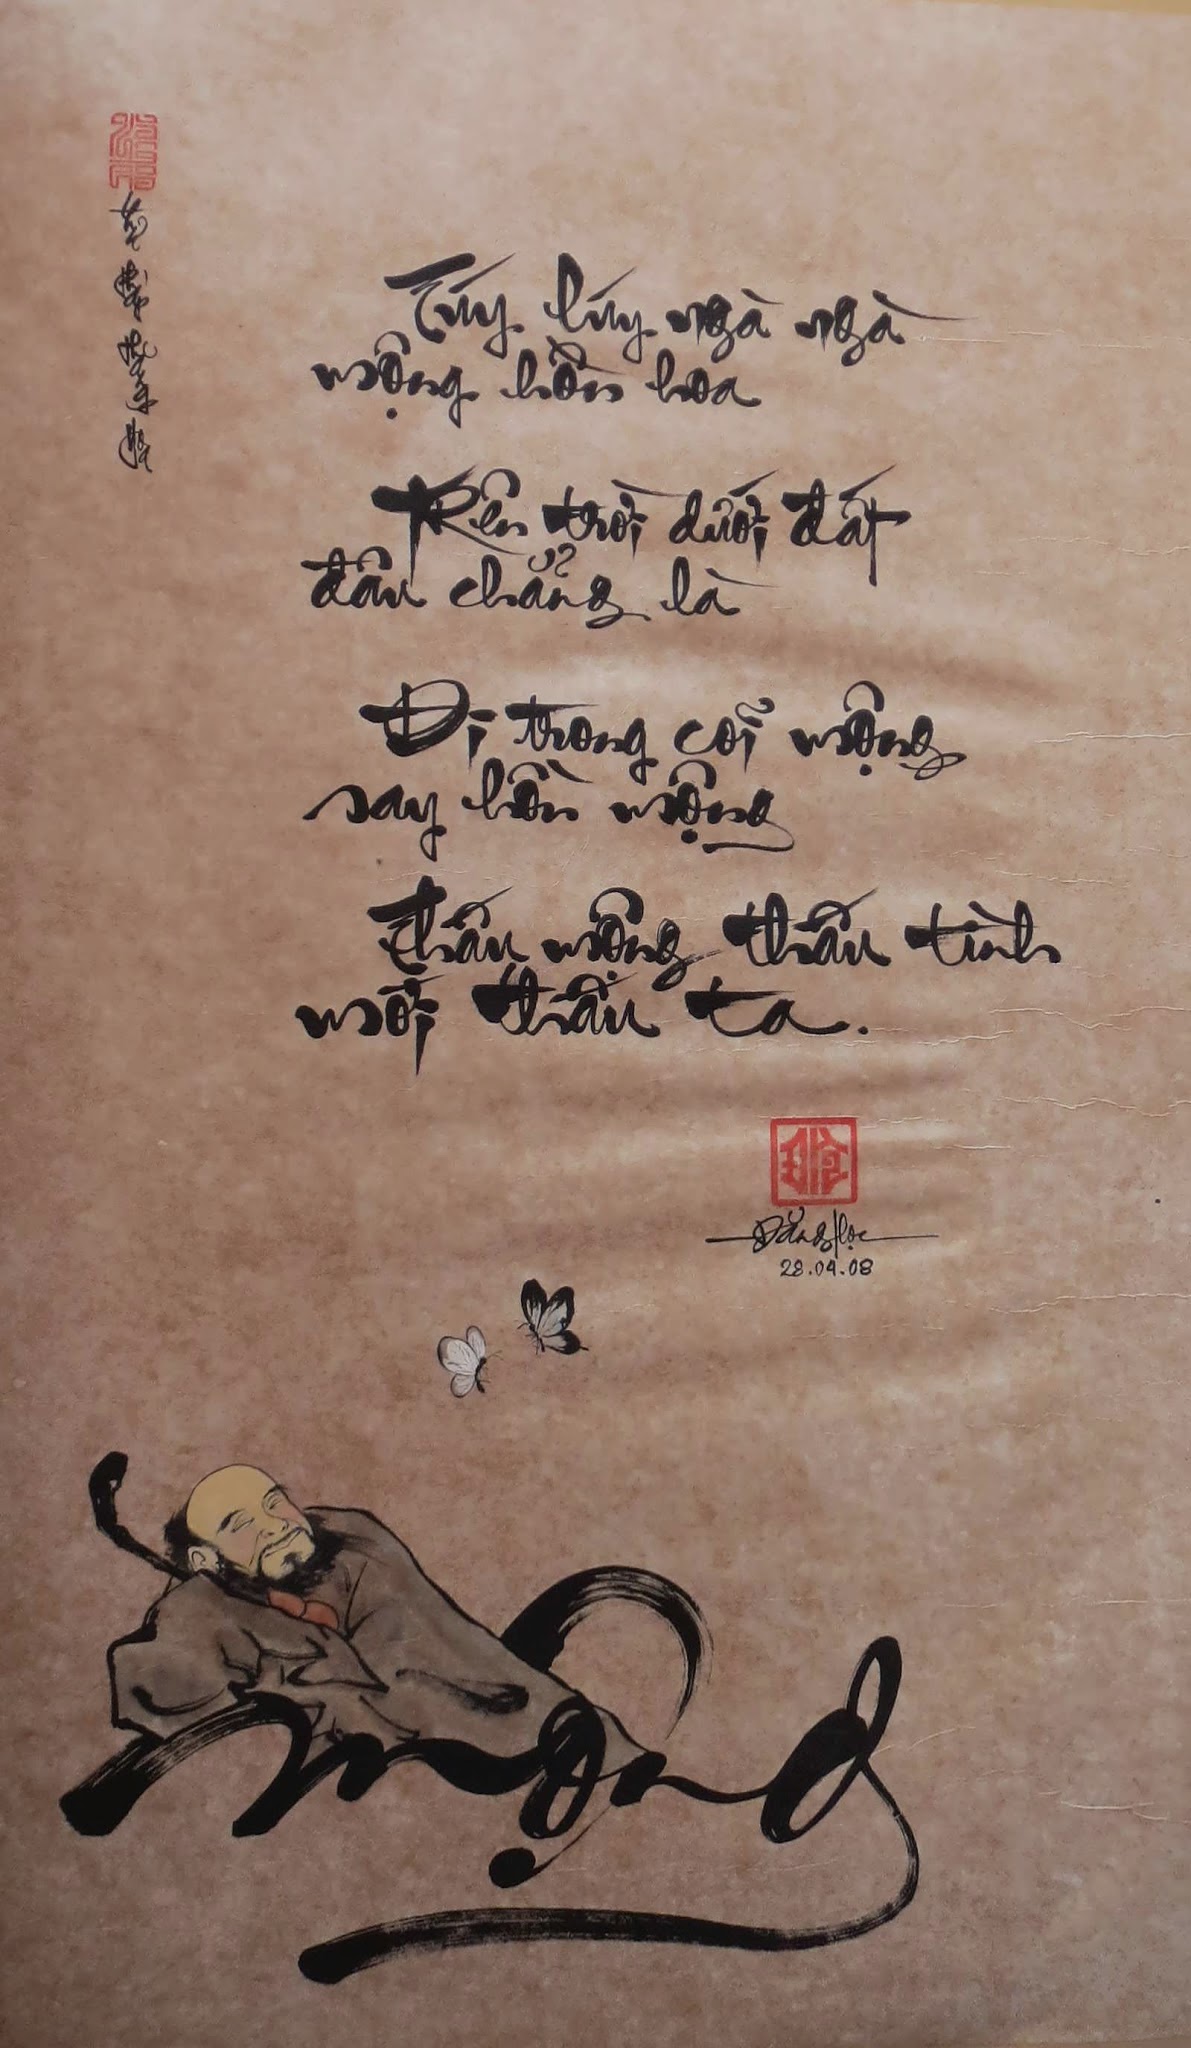 Túy lúy ngà ngà
mộng hồn hoa
Trên trời dưới đất
đâu chẳng là
Đi trong cõi mộng
say hồn mộng
Thấu mộng thấu tình
mới thấu ta.
Đăng Học
28.04.08
mộng